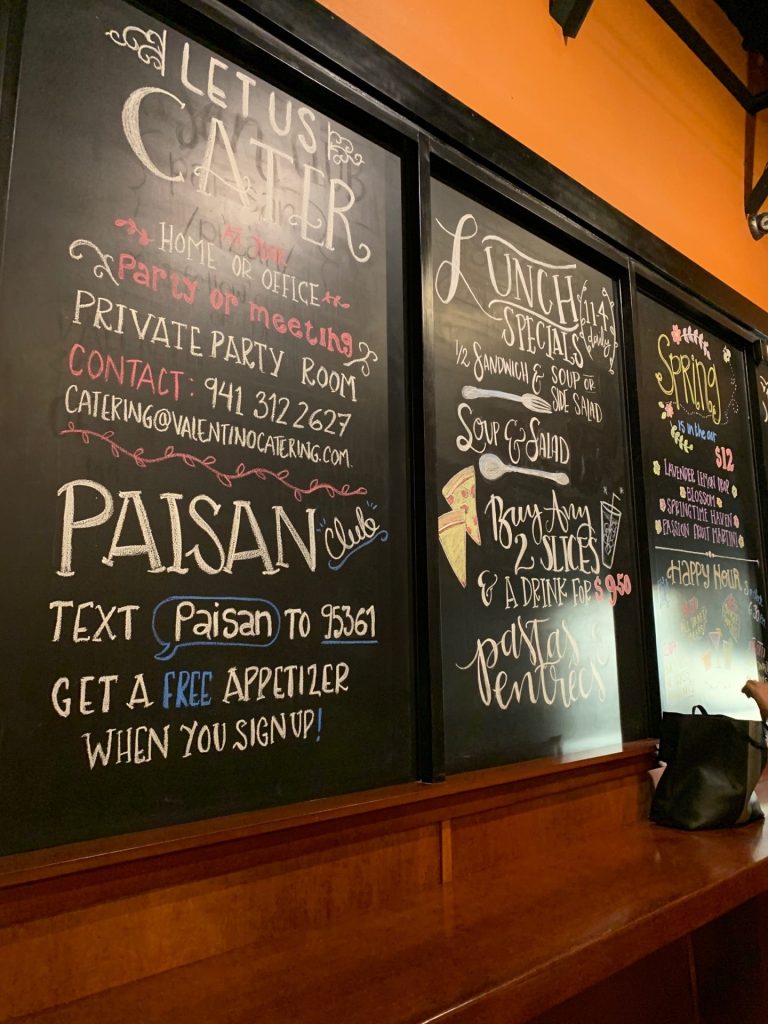 LET US
CATER
HOME OR OFFICE
Party or meeting
PRIVATE PARTY ROOM
CONTACT: 941 312 2627
CATERING@VALENTINOCATERING.COM.
PAISAN Club
TEXT Paisan TO 95361
GET A FREE APPETIZER
WHEN YOU SIGN UP!
LUNCH
SPECIALS
11-4
daily
1/2 SANDWICH & SOUP OR
SIDE SALAD
SOUP & SALAD
Buy Any
2 SLICES
& A DRINK FOR $9.50
pastas &
entrees
Spring
is in the air
$12
LAVENDER LEMON DROP
BLOSSOM
SPRINGTIME HAVEN
PASSION FRUIT MARTINI
HAPPY HOUR